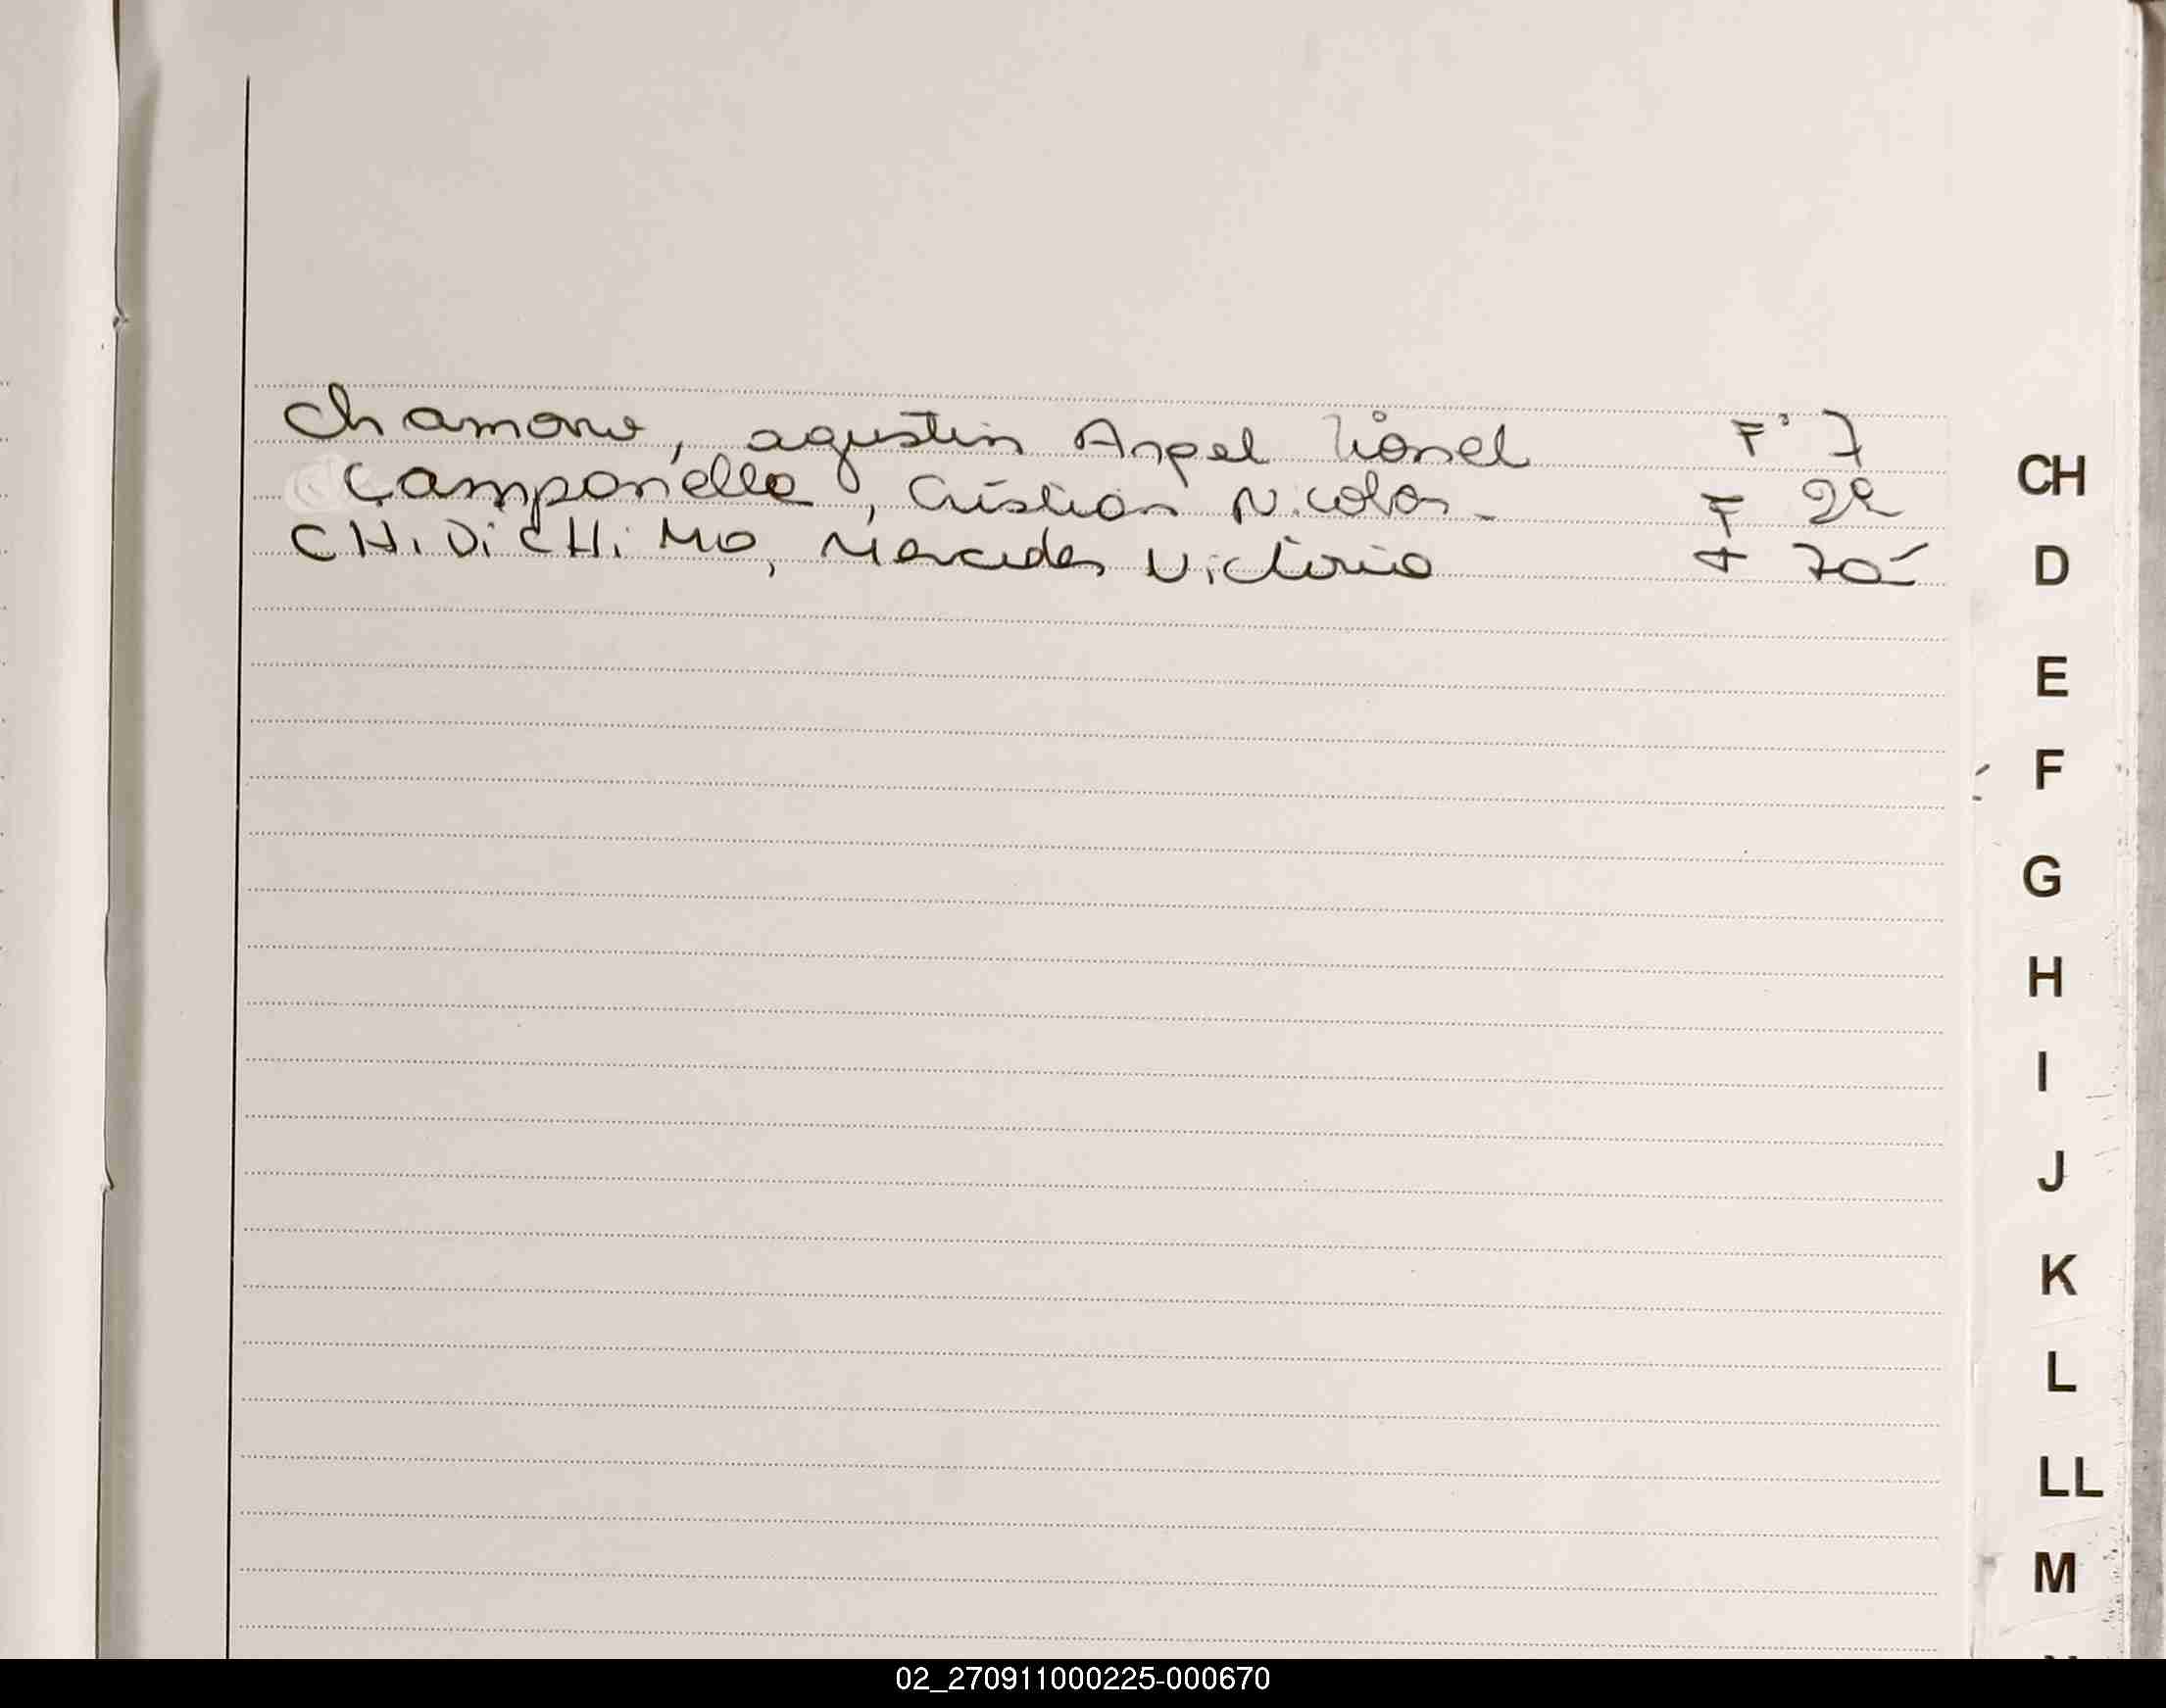 Chamorro, agustin Angel Lionel F° 7
Campanella, Cristian Nicolas - F 22
CHiDiCHiMO, Mercedes Victoria F 70
CH
D
E
F
G
H
I
J
K
L
LL
M
02_270911000225-000670